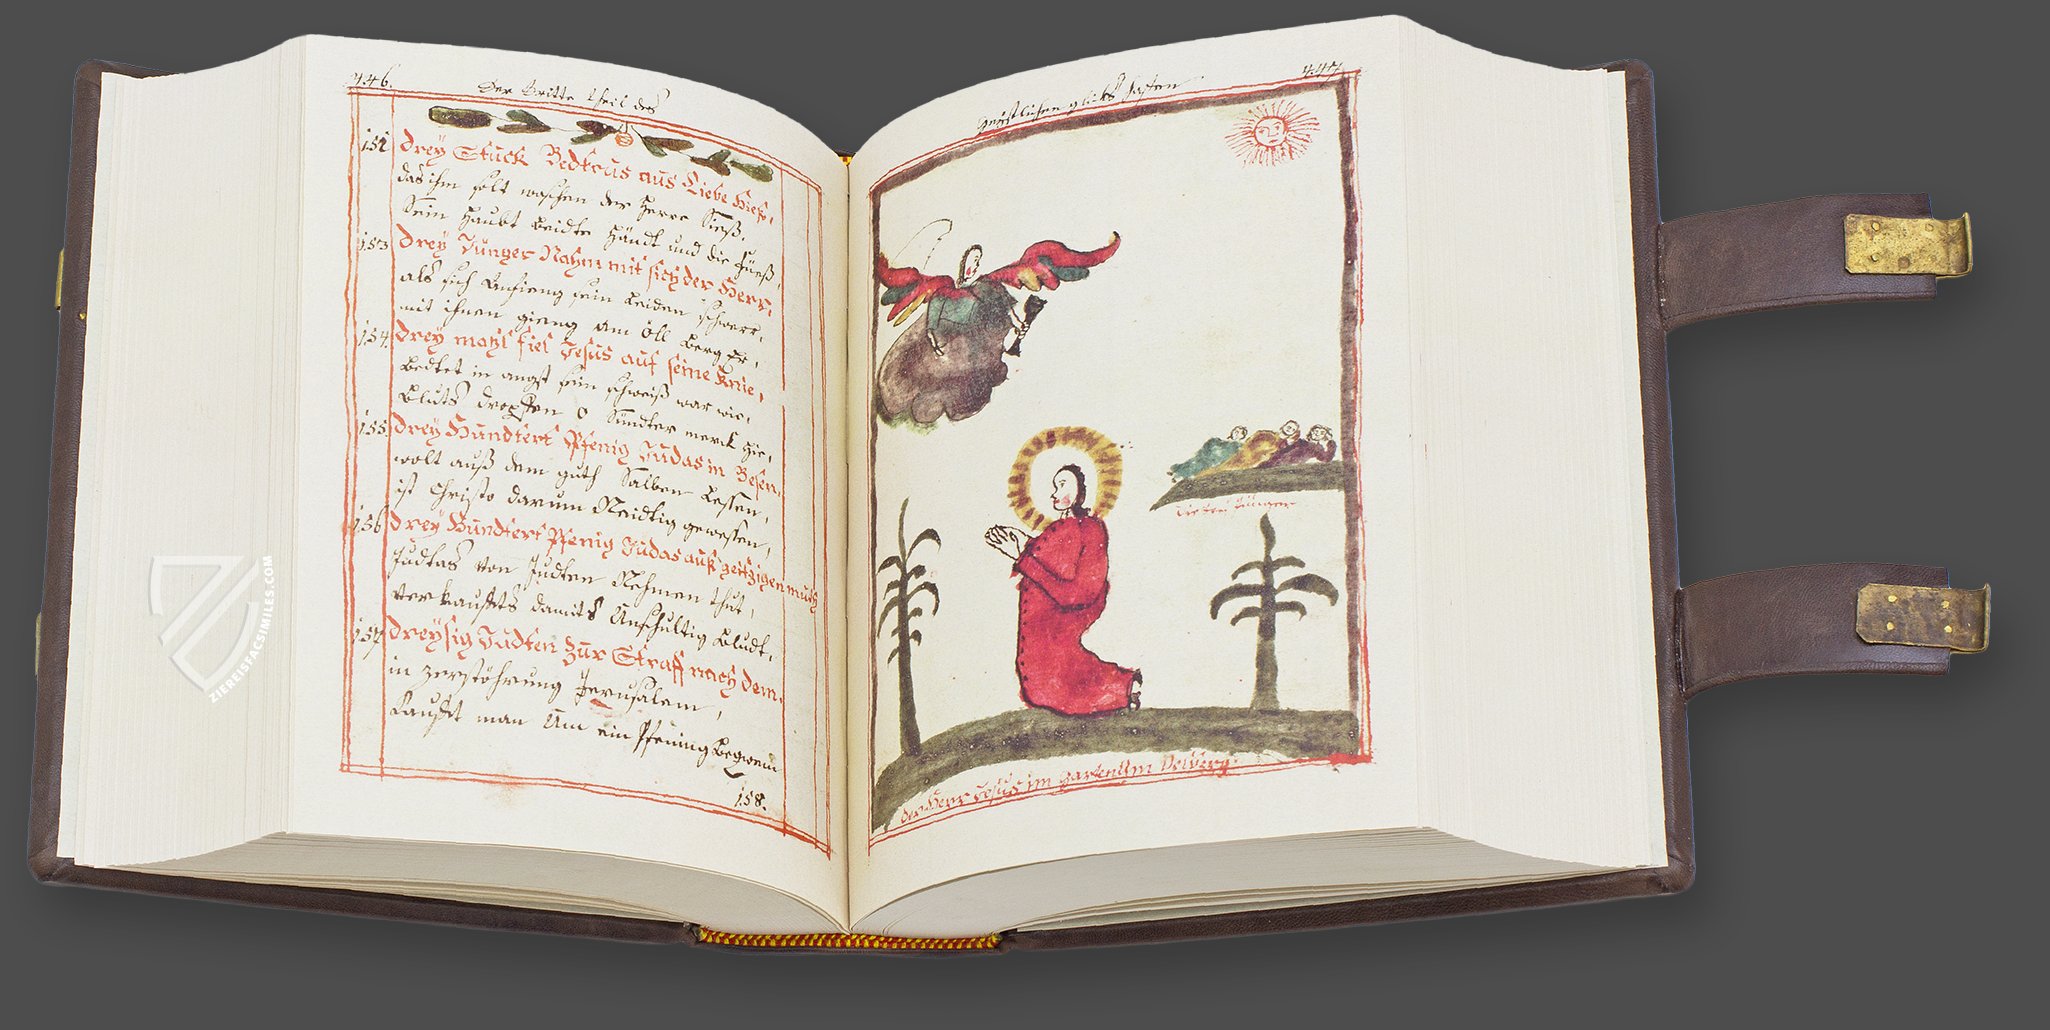 446.
Der Dritte theil des
152 Drey Stuck Bedteüs aus Liebe hieß,
das ihm solt waschen der Herre Sieß.
Sein Haubt beidte Händt und die Füeß,
153 Drey Jünger Nahm mit sich der Herr,
als sich Anfieng sein Leiden schwerr,
mit ihnen gieng am Öll berg Er,
154. Drey mahl fiel Jesus auf seine Knie,
Bedtet in angst sein schweiß war wie,
Bluts dropffen O Sündter merck hie,
155. Drey Hundtert Pfenig Judas in Besen,
wolt auß dem guth Salben Lessen,
ist Christo darum Neidtig gewessen,
156 Drey Hundtert Pfenig Judas auß geitzigen muth
Judtas von Judten Nehmen thut,
verkauffts damits Unschultig Bludt,
157 Dreysig Judten Zur Straff nach dem,
in zerstöhrung Jerusalem,
Kaufft man Um ein Pfening Begwem
158.
447
geistlichen glicks hasten
die drei Jünger
der Herr Jesus im garten Um Oelberg
ZIEREISFACSIMILES.COM